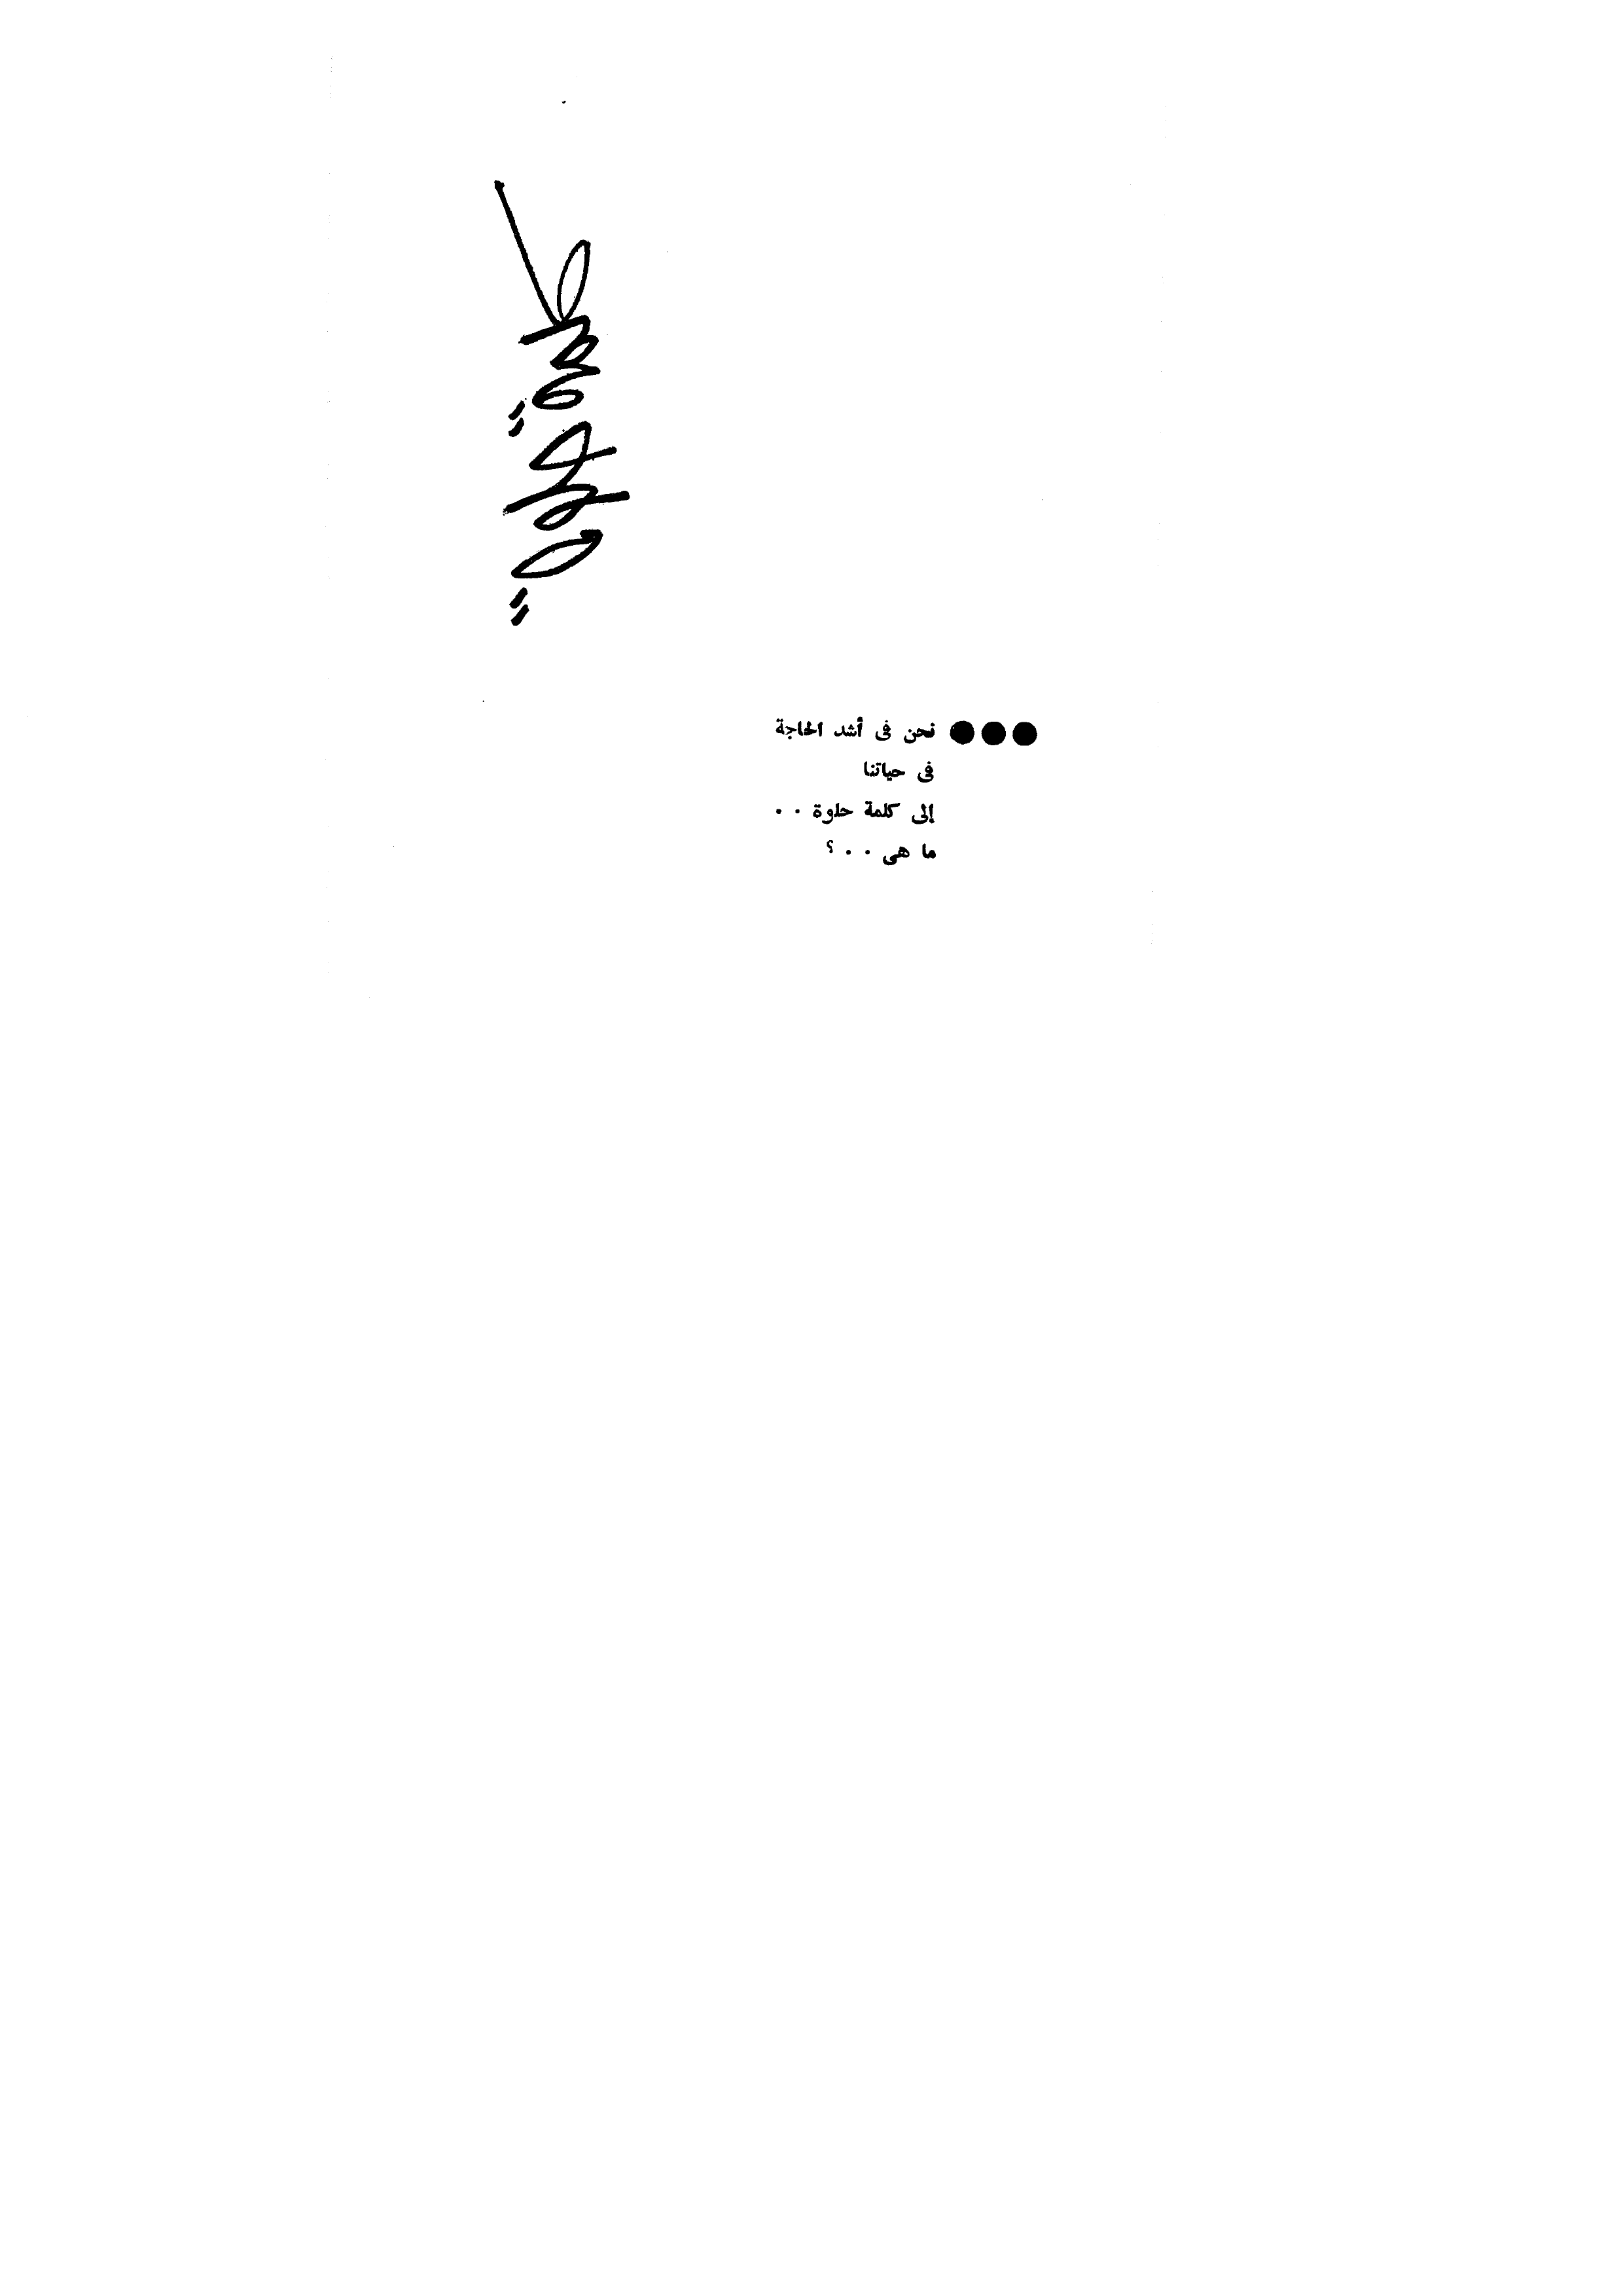 ●●● نحن فى أشد الحاجة
فى حياتنا
إلى كلمة حلوة ٠٠
ما هى ٠٠ ؟